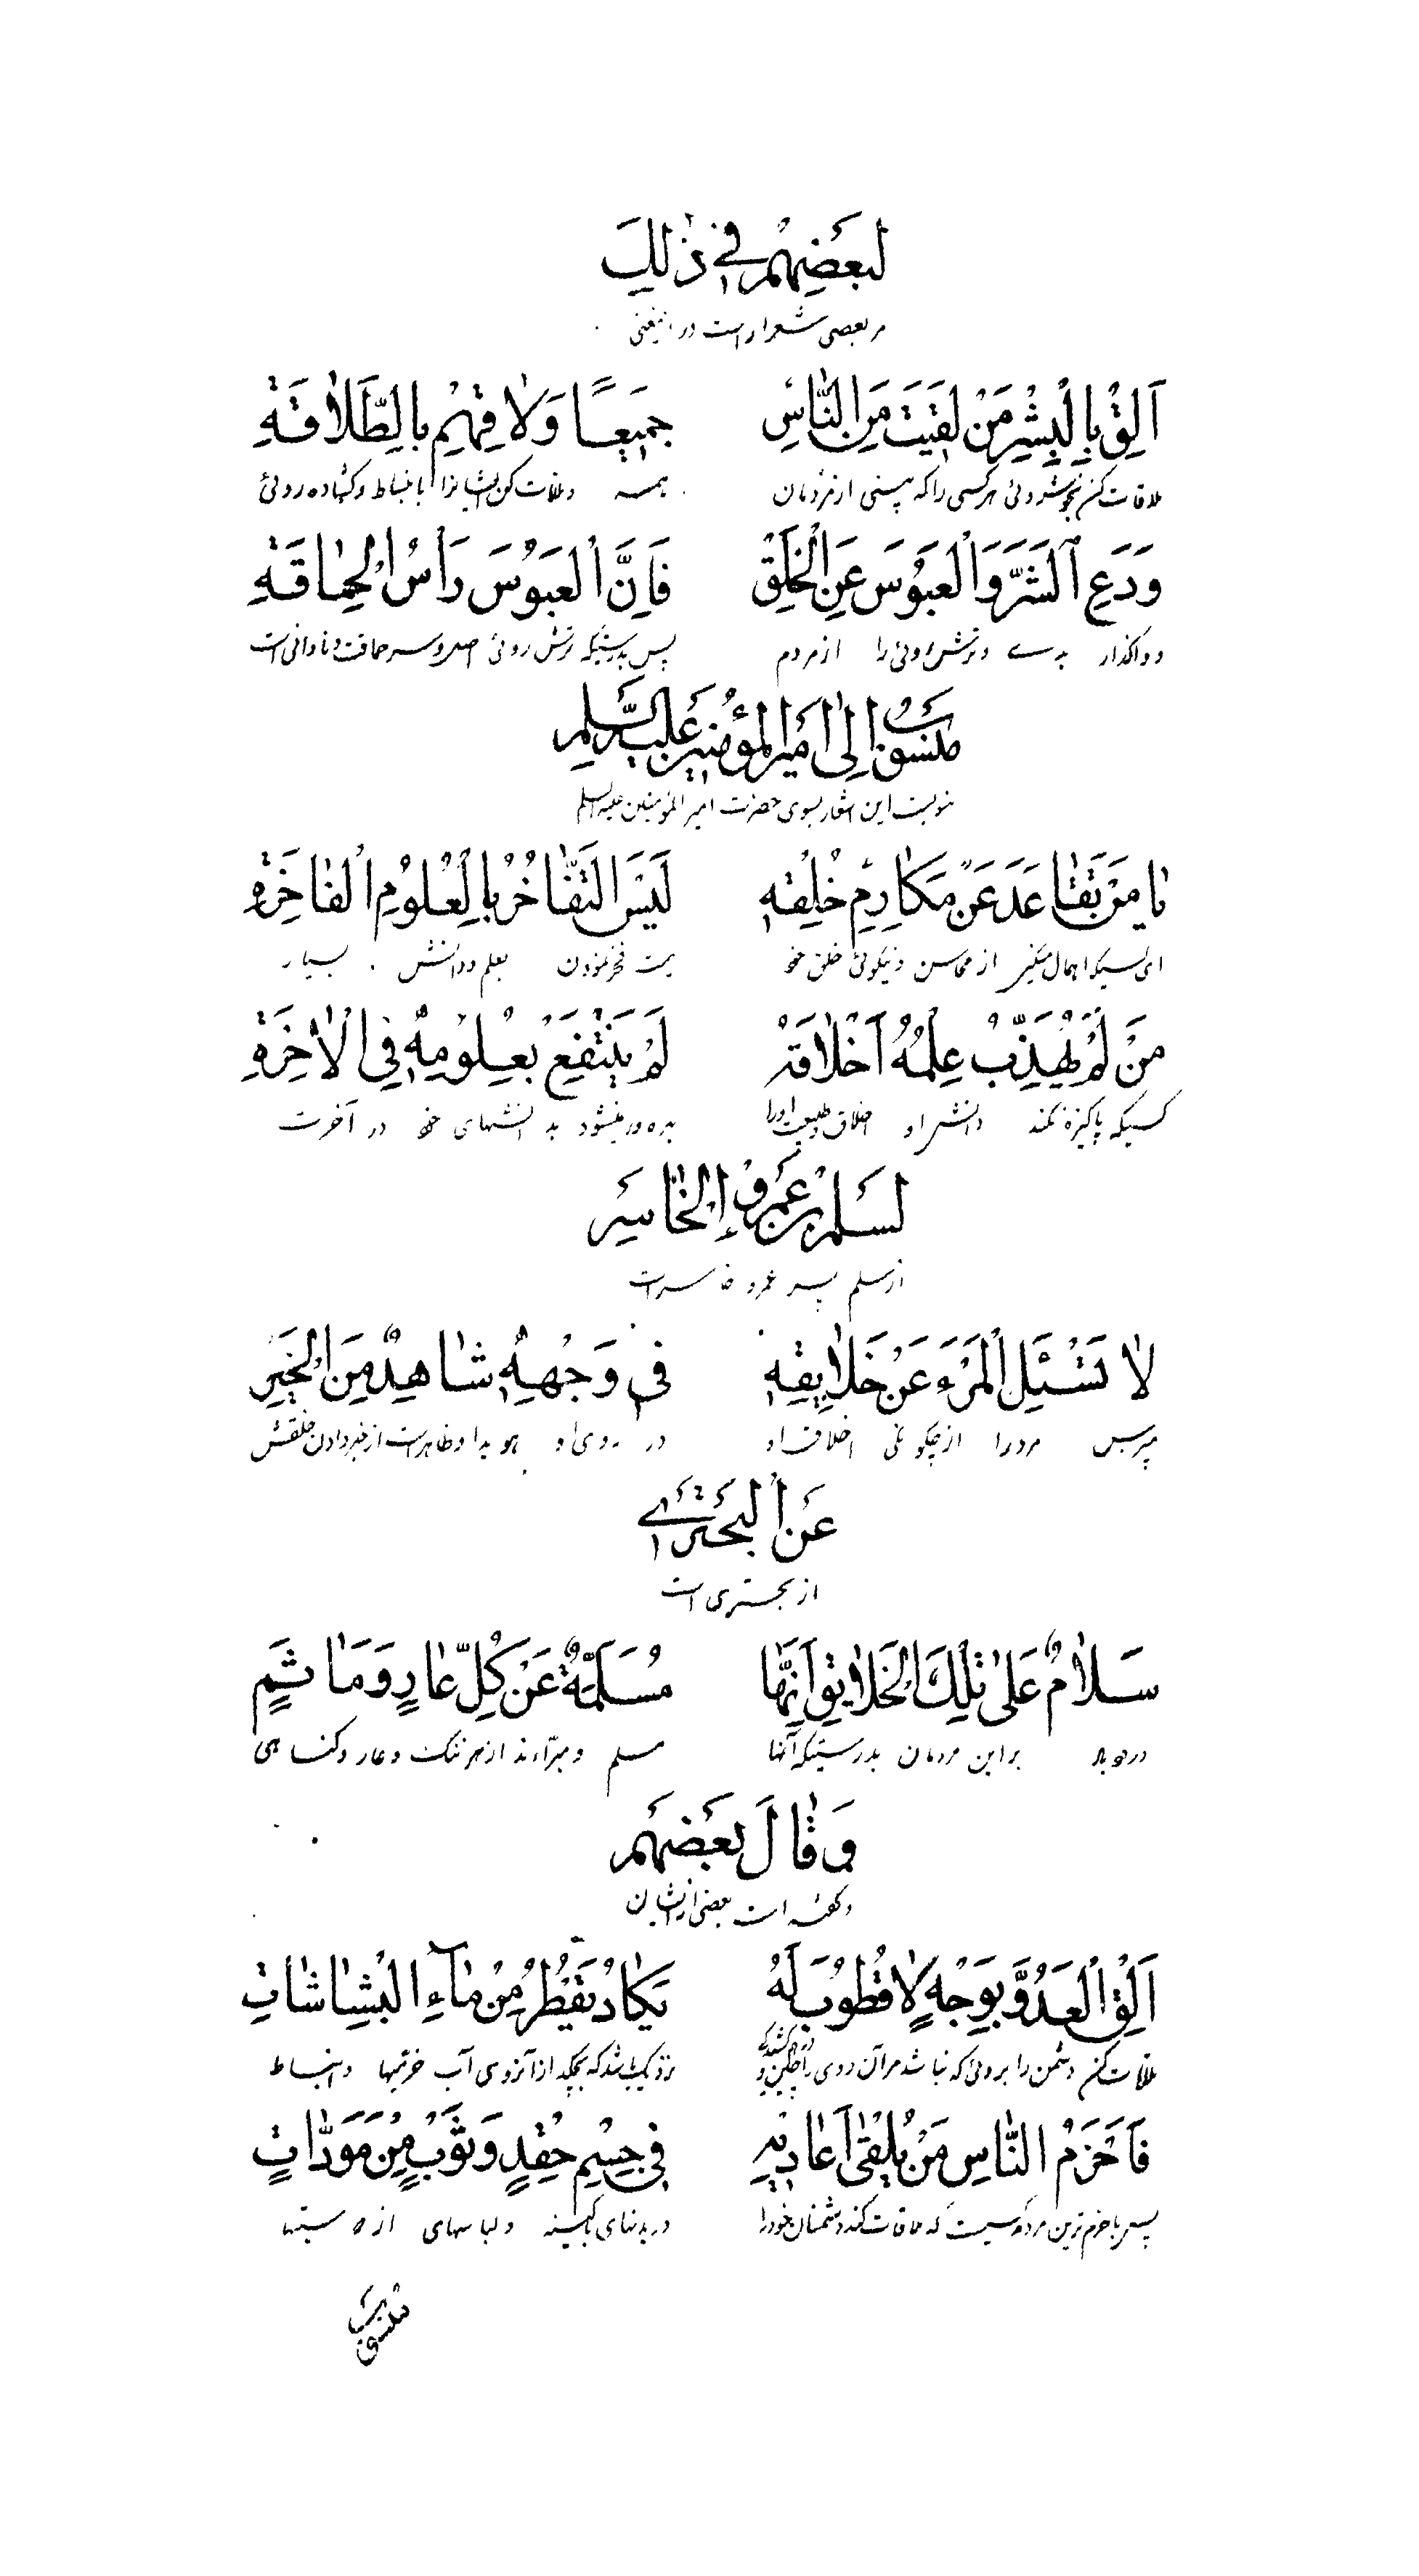 لِبَعْضِهِمْ فِی ذٰلِكَ
مر بعضی شعرا راست در اینمعنی
اَلِقْ بِالْبِشْرِ مَنْ لَقِیتَ مِنَ النّٰاسِ جَمِیعًا وَلاٰقِهِمْ بِالطَّلاٰقَةِ
ملاقات کن بخوشروئی هر کسی را که ببینی از مردمان همه وملاقات کن ایشانرا بانبساط و کشاده روئی
وَدَعِ الشَّرَّ وَالْعَبُوسَ عَنِ الْخَلْقِ فَاِنَّ الْعَبُوسَ رَأْسُ الْحِمٰاقَةِ
و واگذار بدے وترش روئی را از مردم پس بدرستیکه ترش روئی اصل وسر حماقت ونادانی است
مَنْسُوبٌ اِلٰی اَمیرِ الْمُؤْمِنینَ عَلَیْهِ السَّلٰم
منسوبست این اشعار بسوی حضرت امیر المؤمنین علیه السلم
یٰا مَنْ تَقٰاعَدَ عَنْ مَكٰارِمِ خُلْقِهِ لَیْسَ التَّفٰاخُرُ بِالْعُلُومِ الْفٰاخِرَةِ
ای کسیکه اهمال میکنی از محاسن ونیکوئی خلق خود نیست فخر نمودن بعلم ودانش بسیار
مَنْ لَمْ یُهَذِّبْ عِلْمُهُ اَخْلاٰقَهُ لَمْ یَنْتَفِعْ بِعُلُومِهِ فِی الْاٰخِرَةِ
کسیکه پاکیزه نکند دانش او اخلاق وطبیعت اورا بهره ور نمیشود به دانشهای خود در آخرت
لِسَلْمِ بْنِ عَمْرٍو الْخٰاسِرِ
از سلم پسر عمرو خاسر است
لاٰ تَسْئَلِ الْمَرْءَ عَنْ خَلاٰیِقِهِ فِی وَجْهِهِ شٰاهِدٌ مِنَ الْخَبَرِ
مپرس مرد را از چگونگی اخلاق او در روی او هویدا وظاهر است از خبر دادن خلقش
عَنِ الْبُحْتُرِی
از بحتری است
سَلاٰمٌ عَلٰی تِلْكَ الْخَلاٰیِقِ اِنَّهٰا مُسَلَّمَةٌ عَنْ كُلِّ عٰارٍ وَمَأثَمٍ
درود باد بر این مردمان بدرستیکه آنها مسلم ومبرّاءند از هر ننگ وعار وگناهی
وَقٰالَ بَعْضُهُمْ
وگفته است بعضی از ایشان
اَلْقِ الْعَدُوَّ بِوَجْهٍ لاٰ قُطُوبَ لَهُ یَكٰادُ یَقْطُرُ مِنْ مٰاۤءِ الْبَشٰاشٰاتِ
ملاقات کن دشمن را بروئی که نباشد مر آن روی را چین و نزدیک باشد که بچکد از آنروی آب خرمیها وانبساط
فَاَحْزَمُ النّٰاسِ مَنْ یَلْقٰی اَعٰادِیَهُ فِی جِسْمِ حِقْدٍ وَثَوْبٍ مِنْ مَوَدّٰاتٍ
پس باحزم ترین مردم کسیست که ملاقات کند دشمنان خود را در بدنهای باکینه ولباسهای از دوستیها
مَنْسُوبٌ